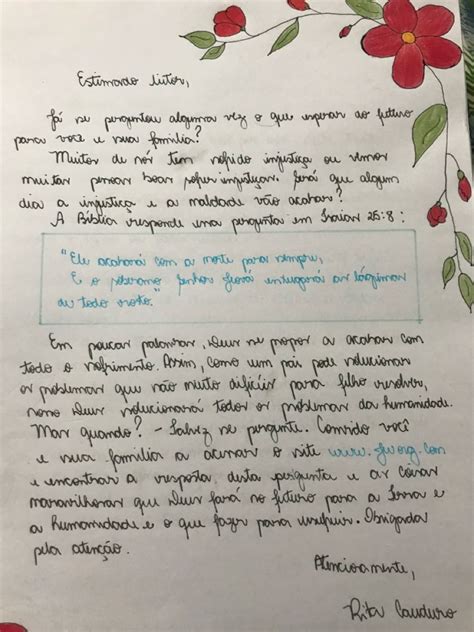 Estimado leitor,
Já se perguntou alguma vez o que esperar do futuro
para você e sua família?
Muitos de nós tem sofrido injustiça ou vemos
muitas pessoas boas sofrer injustiças. Será que algum
dia a injustiça e a maldade vão acabar?
A Bíblia responde essa pergunta em Isaías 25:8:
"Ele acabará com a morte para sempre,
E o soberano Senhor Jeová enxugará as lágrimas
de todo rosto."
Em poucas palavras, Deus se propôs a acabar com
todo o sofrimento. Assim, como um pai pode solucionar
os problemas que são muito difíceis para filho resolver,
nosso Deus solucionará todos os problemas da humanidade.
Mas quando? - Talvez se pergunte. Convido você
e sua família a acessar o site www.jw.org.com
e encontrar a resposta, desta pergunta e as coisas
maravilhosas que Deus fará no futuro para a Terra e
a humanidade e o que fazer para usufruir. Obrigada
pela atenção.
Atenciosamente,
Rita Cauduro